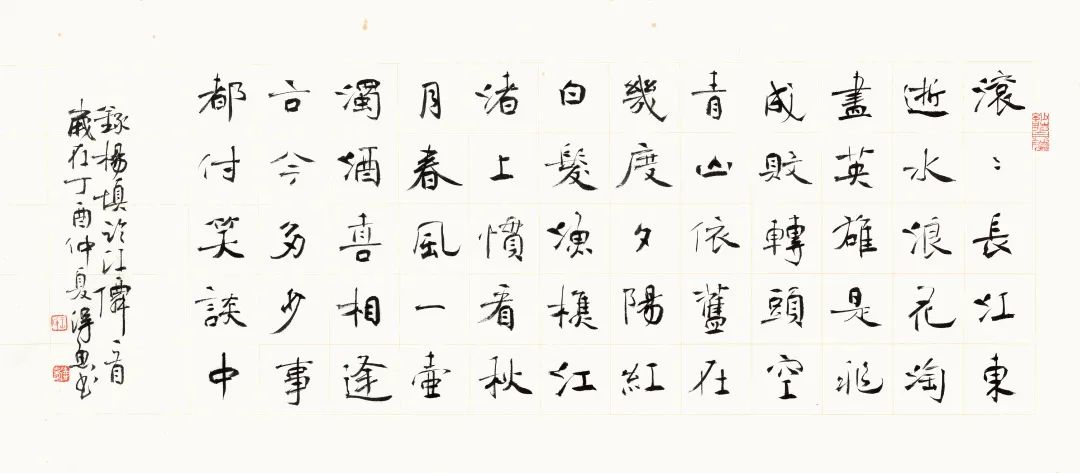 滾〻長江東
逝水浪花淘
盡英雄是非
成敗轉頭空
青山依舊在
幾度夕陽紅
白髮漁樵江
渚上慣看秋
月春風一壺
濁酒喜相逢
古今多少事
都付笑談中
錄楊慎臨江僊一首
歲在丁酉仲夏